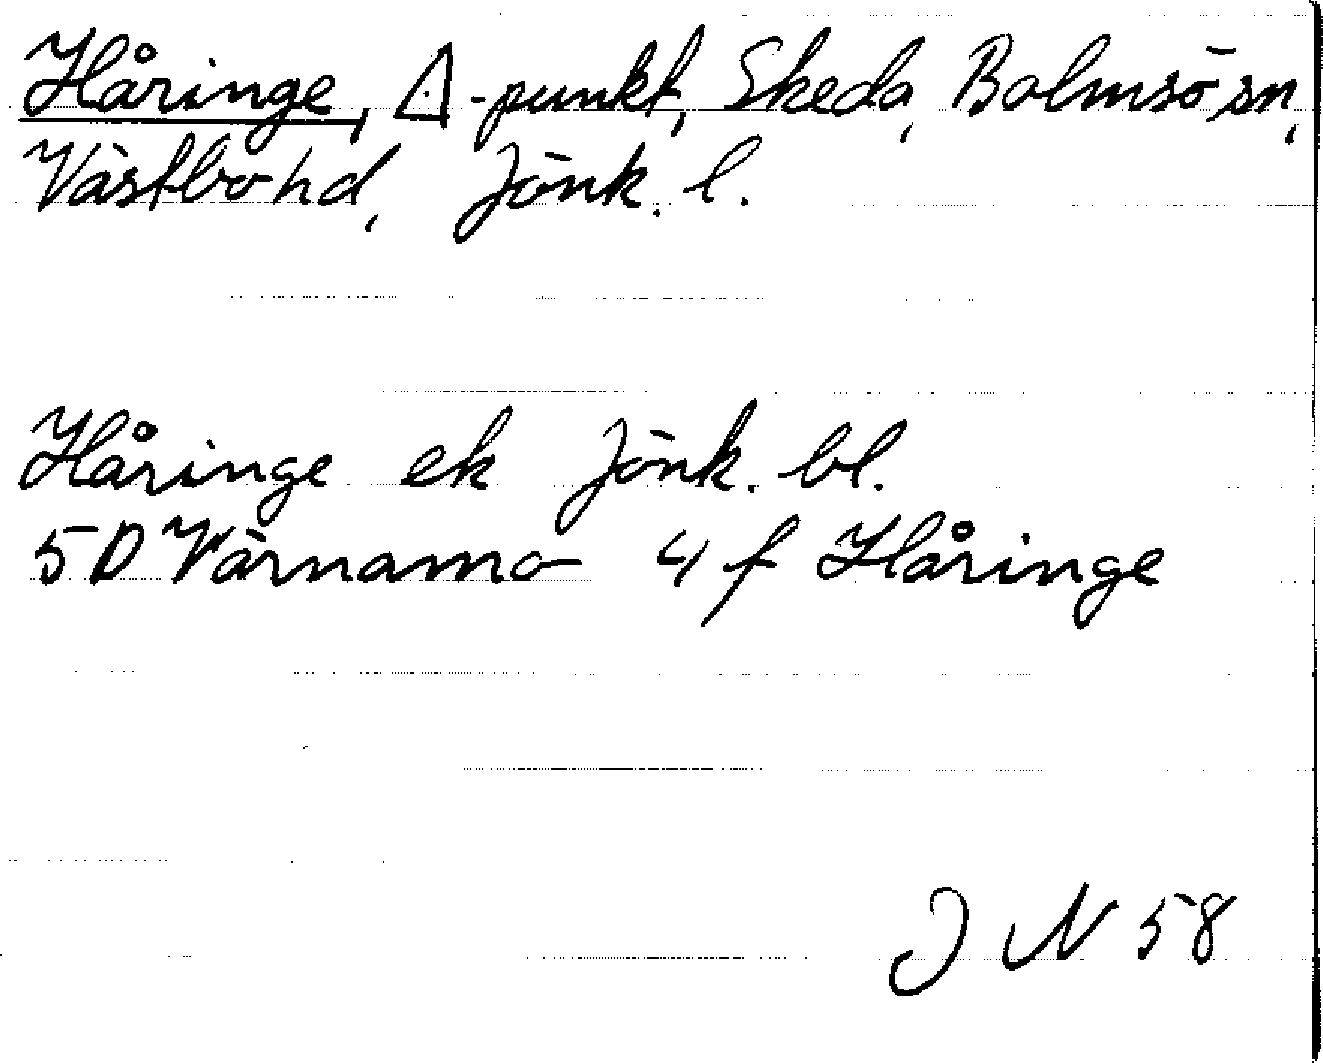 Håringe, △-punkt, Skeda, Bolmsö sn,
Västbo hd, Jönk. l.
Håringe ek Jönk. bl.
5D Värnamo 4 f Håringe
J N 58